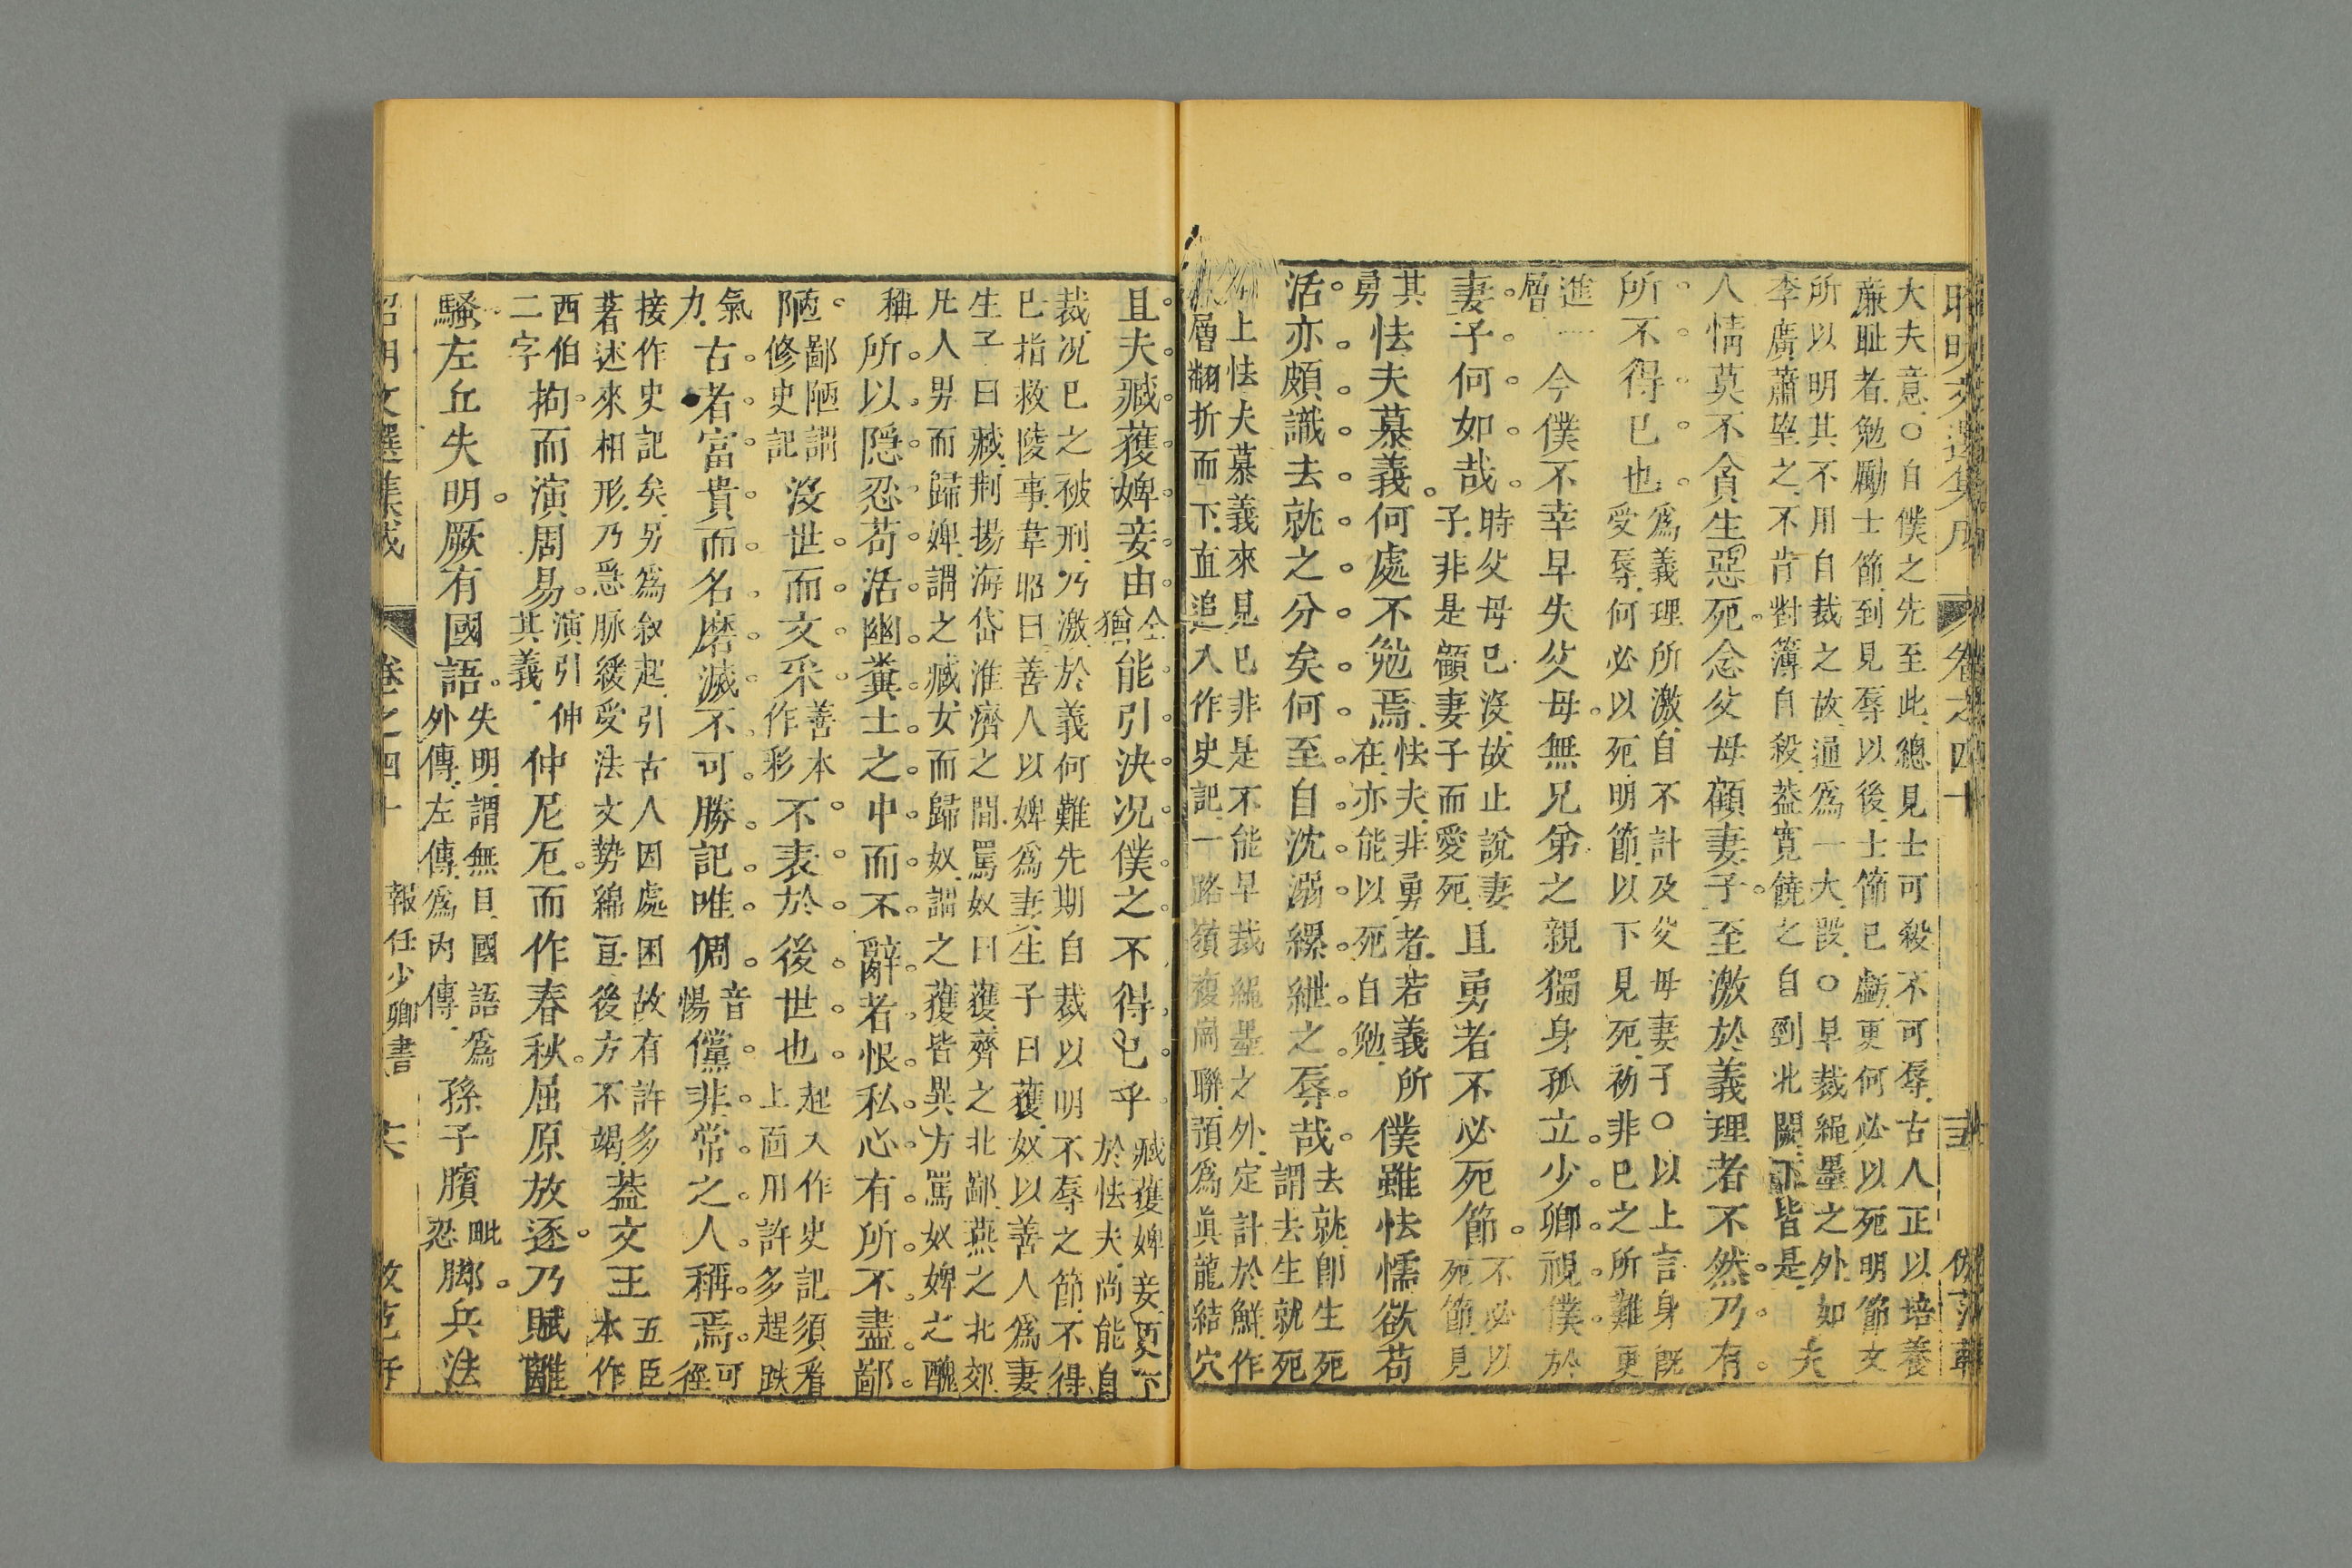 大夫意○自僕之先至此總見士可殺不可辱古人正以培養
廉耻者勉勵士節到見辱以後士節已虧更何必以死明節文
所以明其不用自裁之故通爲一大段○早裁繩墨之外如
李廣蕭望之不肯對簿自殺葢寬饒之自剄北闕下皆是
夫
人情莫不貪生惡死念父母顧妻子至激於義理者不然乃有
所不得已也
爲義理所激自不計及父母妻子○以上言身既
受辱何必以死明節以下見死初非已之所難更
進一
層
今僕不幸早失父母無兄弟之親獨身孤立少卿視僕於
妻子何如哉
時父母已沒故止說妻
子非是顧妻子而愛死
且勇者不必死節
不必以
死節見
其
勇
怯夫慕義何處不勉焉
怯夫非勇者若義所
在亦能以死自勉
僕雖怯懦欲苟
活亦頗識去就之分矣何至自沈溺縲紲之辱哉
去就卽生死
謂去生就死
上怯夫慕義來見已非是不能早裁繩墨之外定計於鮮作
層翻折而下直追入作史記一路嶺複崗聯預爲眞龍結穴
昭明文選集成
卷之四十
且夫臧獲婢妾由
仝
猶
能引決況僕之不得已乎
臧獲婢妾更下
於怯夫尚能自
裁況已之被刑乃激於義何難先期自裁以明不辱之節不得
已指救陵事韋昭曰善人以婢爲妻生子曰獲奴以善人爲妻
生子曰臧荆揚海岱淮濟之間罵奴曰獲齊之北鄙燕之北郊
凡人男而歸婢謂之臧女而歸奴謂之獲皆異方罵奴婢之醜
稱
所以隱忍苟活幽糞土之中而不辭者恨私心有所不盡鄙
陋
鄙陋謂
修史記
沒世而文采
善本
作彩
不表於後世也
起入作史記須看
上面用許多趕跌
氣
力
古者富貴而名磨滅不可勝記唯倜
音
惕
儻非常之人稱焉
可
徑
接作史記矣另爲叙起引古人因處困故有許多
著述來相形乃急脉緩受法文勢綿亘後方不竭
葢文王
五臣
本作
西伯
二字
拘而演周易
演引伸
其義
仲尼厄而作春秋屈原放逐乃賦離
騷左丘失明厥有國語
失明謂無目國語爲
外傳左傳爲內傳
孫子臏
毗
忍
脚兵法
昭明文選集成
卷之四十
報任少卿書